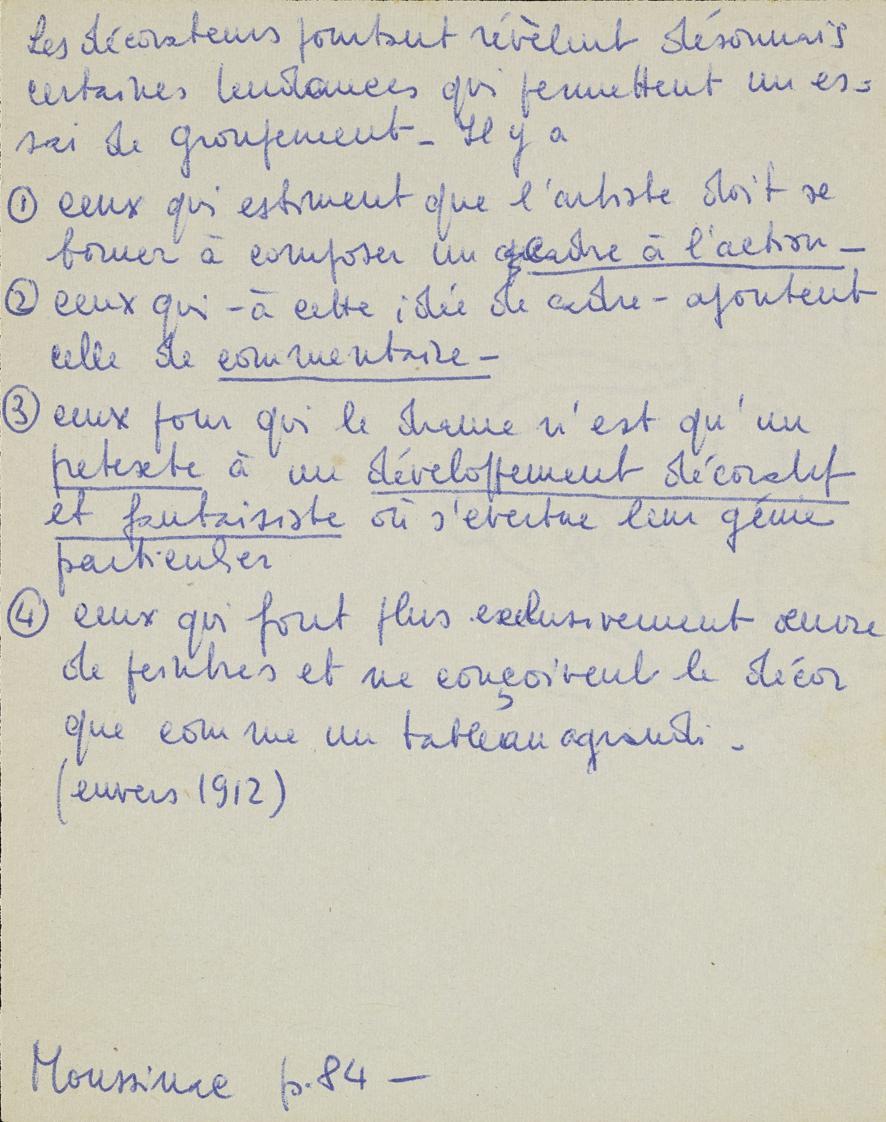 Les décorateurs pourtant révèlent désormais
certaines tendances qui permettent un es-
sai de groupement - Il y a
① ceux qui estiment que l'artiste doit se
borner à composer un cadre à l'action -
② ceux qui - à cette idée de cadre - ajoutent
celle de commentaire -
③ ceux pour qui le drame n'est qu'un
pretexte à un développement décoratif
et fantaisiste où s'evertue leur génie
particulier
④ ceux qui font plus exclusivement œuvre
de peintres et ne conçoivent le décor
que comme un tableau agrandi.
(envers 1912)
Moussinac p.84 -